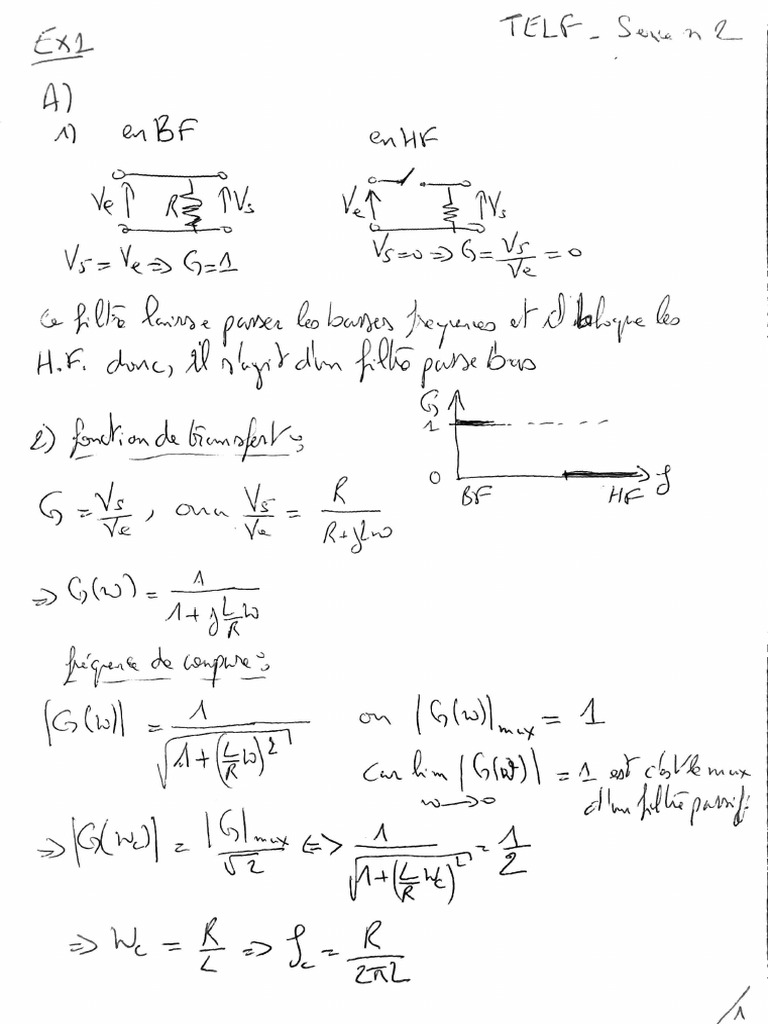 TELF - Serie n 2
Ex1
A)
1) en BF en HF
Ve R Vs Ve Vs
Vs = Ve => G = 1 Vs = 0 => G = Vs/Ve = 0
Ce filtre laisse passer les basses frequences et il bloque les
H.F. donc, il s'agit d'un filtre passe bas
G 1 0 BF HF f
2) fonction de transfert :
G = Vs/Ve , on a Vs/Ve = R/(R+jLω)
=> G(ω) = 1/(1+j(L/R)ω)
fréquence de coupure :
|G(ω)| = 1/√(1+(L/R ω)²) on |G(ω)|max = 1
Car lim ω→0 |G(ω)| = 1 est c'est le max
d'un filtre passif
=> |G(ωc)| = |G|max/√2 <=> 1/√(1+(L/R ωc)²) = 1/2
=> Wc = R/L => fc = R/2πL
/1